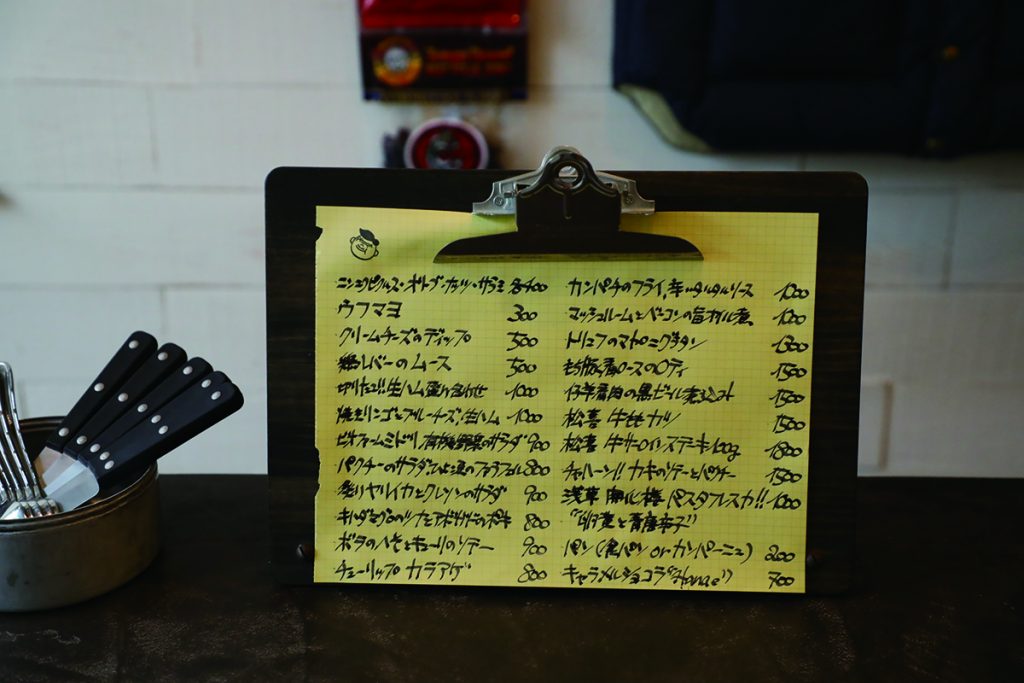 ニシンピクルス・オリーブ・ナッツ・サラミ 各400
ウフマヨ 300
クリームチーズのディップ 500
鶏レバーのムース 500
切りたて!!生ハム盛り合わせ 1000
焼きリンゴとブルーチーズ,生ハム 1000
ビオファームミドリ 有機野菜のサラダ 900
パクチーのサラダ ひよこ豆のファラフェル 800
炙りヤリイカとクレソンのサラダ 900
キハダマグロのヅケとアボカドのポキ 800
ブタのハそとキューリのソテー 900
チューリップ カラアゲ 800
カンパチのフライ,辛いタルタルソース 1000
マッシュルームとベーコンの旨オイル煮 1000
トリュフのマカロニグラタン 1300
もち豚肩ロースのロティ 1500
仔羊肩肉の黒ビール煮込み 1500
松喜 牛ももカツ 1500
松喜 牛サーロインステーキ100g 1800
チャハーン!! カキのソテーとパクチー 1500
浅草 開化楼 パスタフレスカ!! 1000
"明太と青唐辛子"
パン(食パン orカンパーニュ) 200
キャラメルショコラ"Hanae" 700